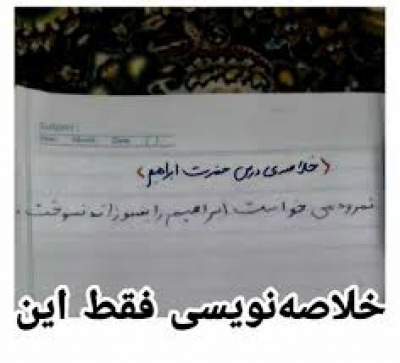 Subject:
Year. Month. Date. ( )
﴿خلاصه‌ی درس حضرت ابراهیم﴾
نمرود می خواست ابراهیم را بسوزاند نسوخت.
خلاصه‌نویسی فقط این